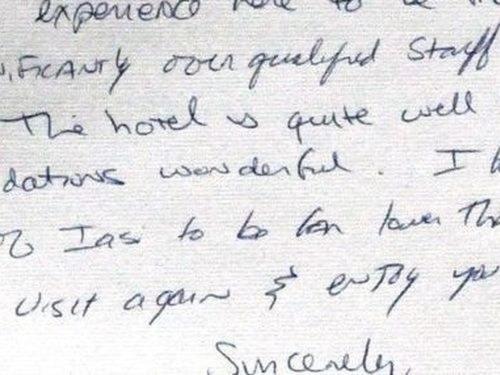 experience here to be
ificantly over qualified staff
The hotel is quite well
dations wonderful. I
Iasi to be far lower
visit again & enjoy you
Sincerely,